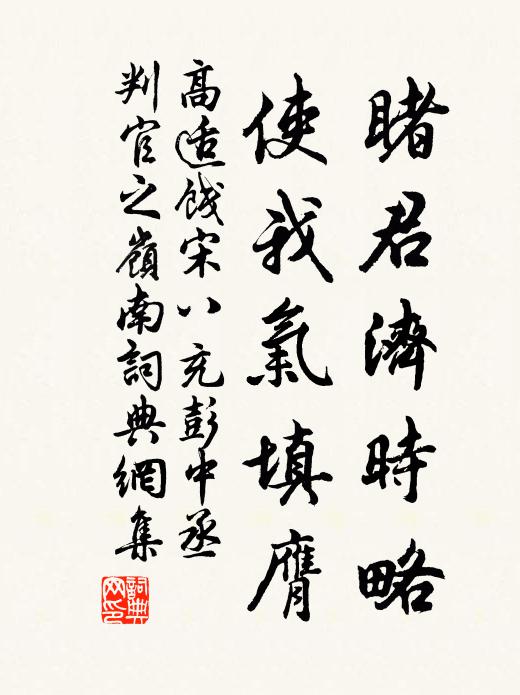 睹君濟時略
使我氣填膺
高适餞宋八充彭中丞
判官之嶺南詞典網集
詞典网印